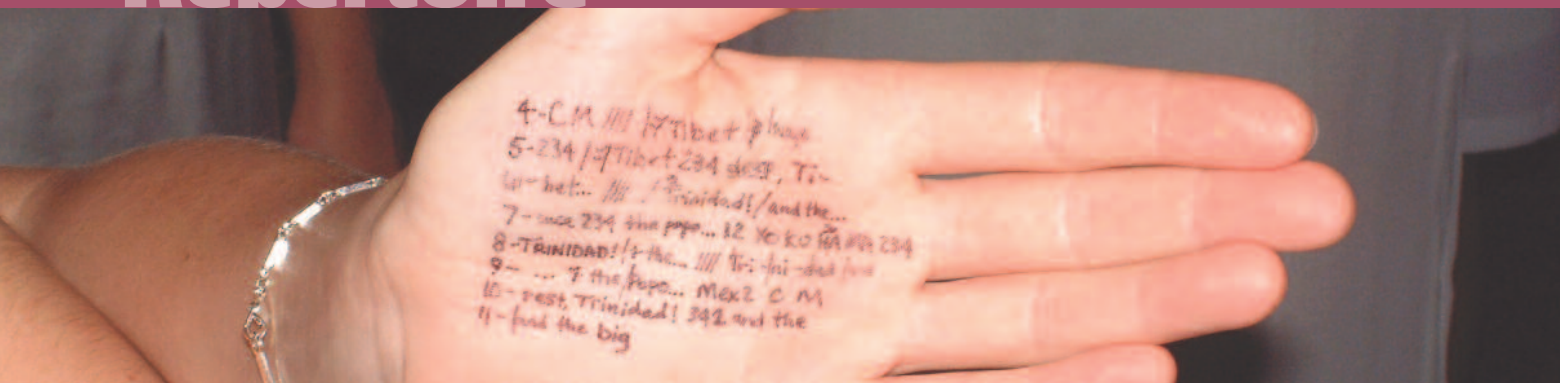 Repertoire
4-CM //// Tibet
5-234 Tibet 234 rest, Ti-
6-bet... //// Trinidad!/and the...
7-once 234 the pope... 12 Yo KU 234
8-TRINIDAD!/+ the... //// Tri-ni-dad
9- ... 7 the Popo... Mex2 C M
10-rest, Trinidad! 342 and the
11-find the big